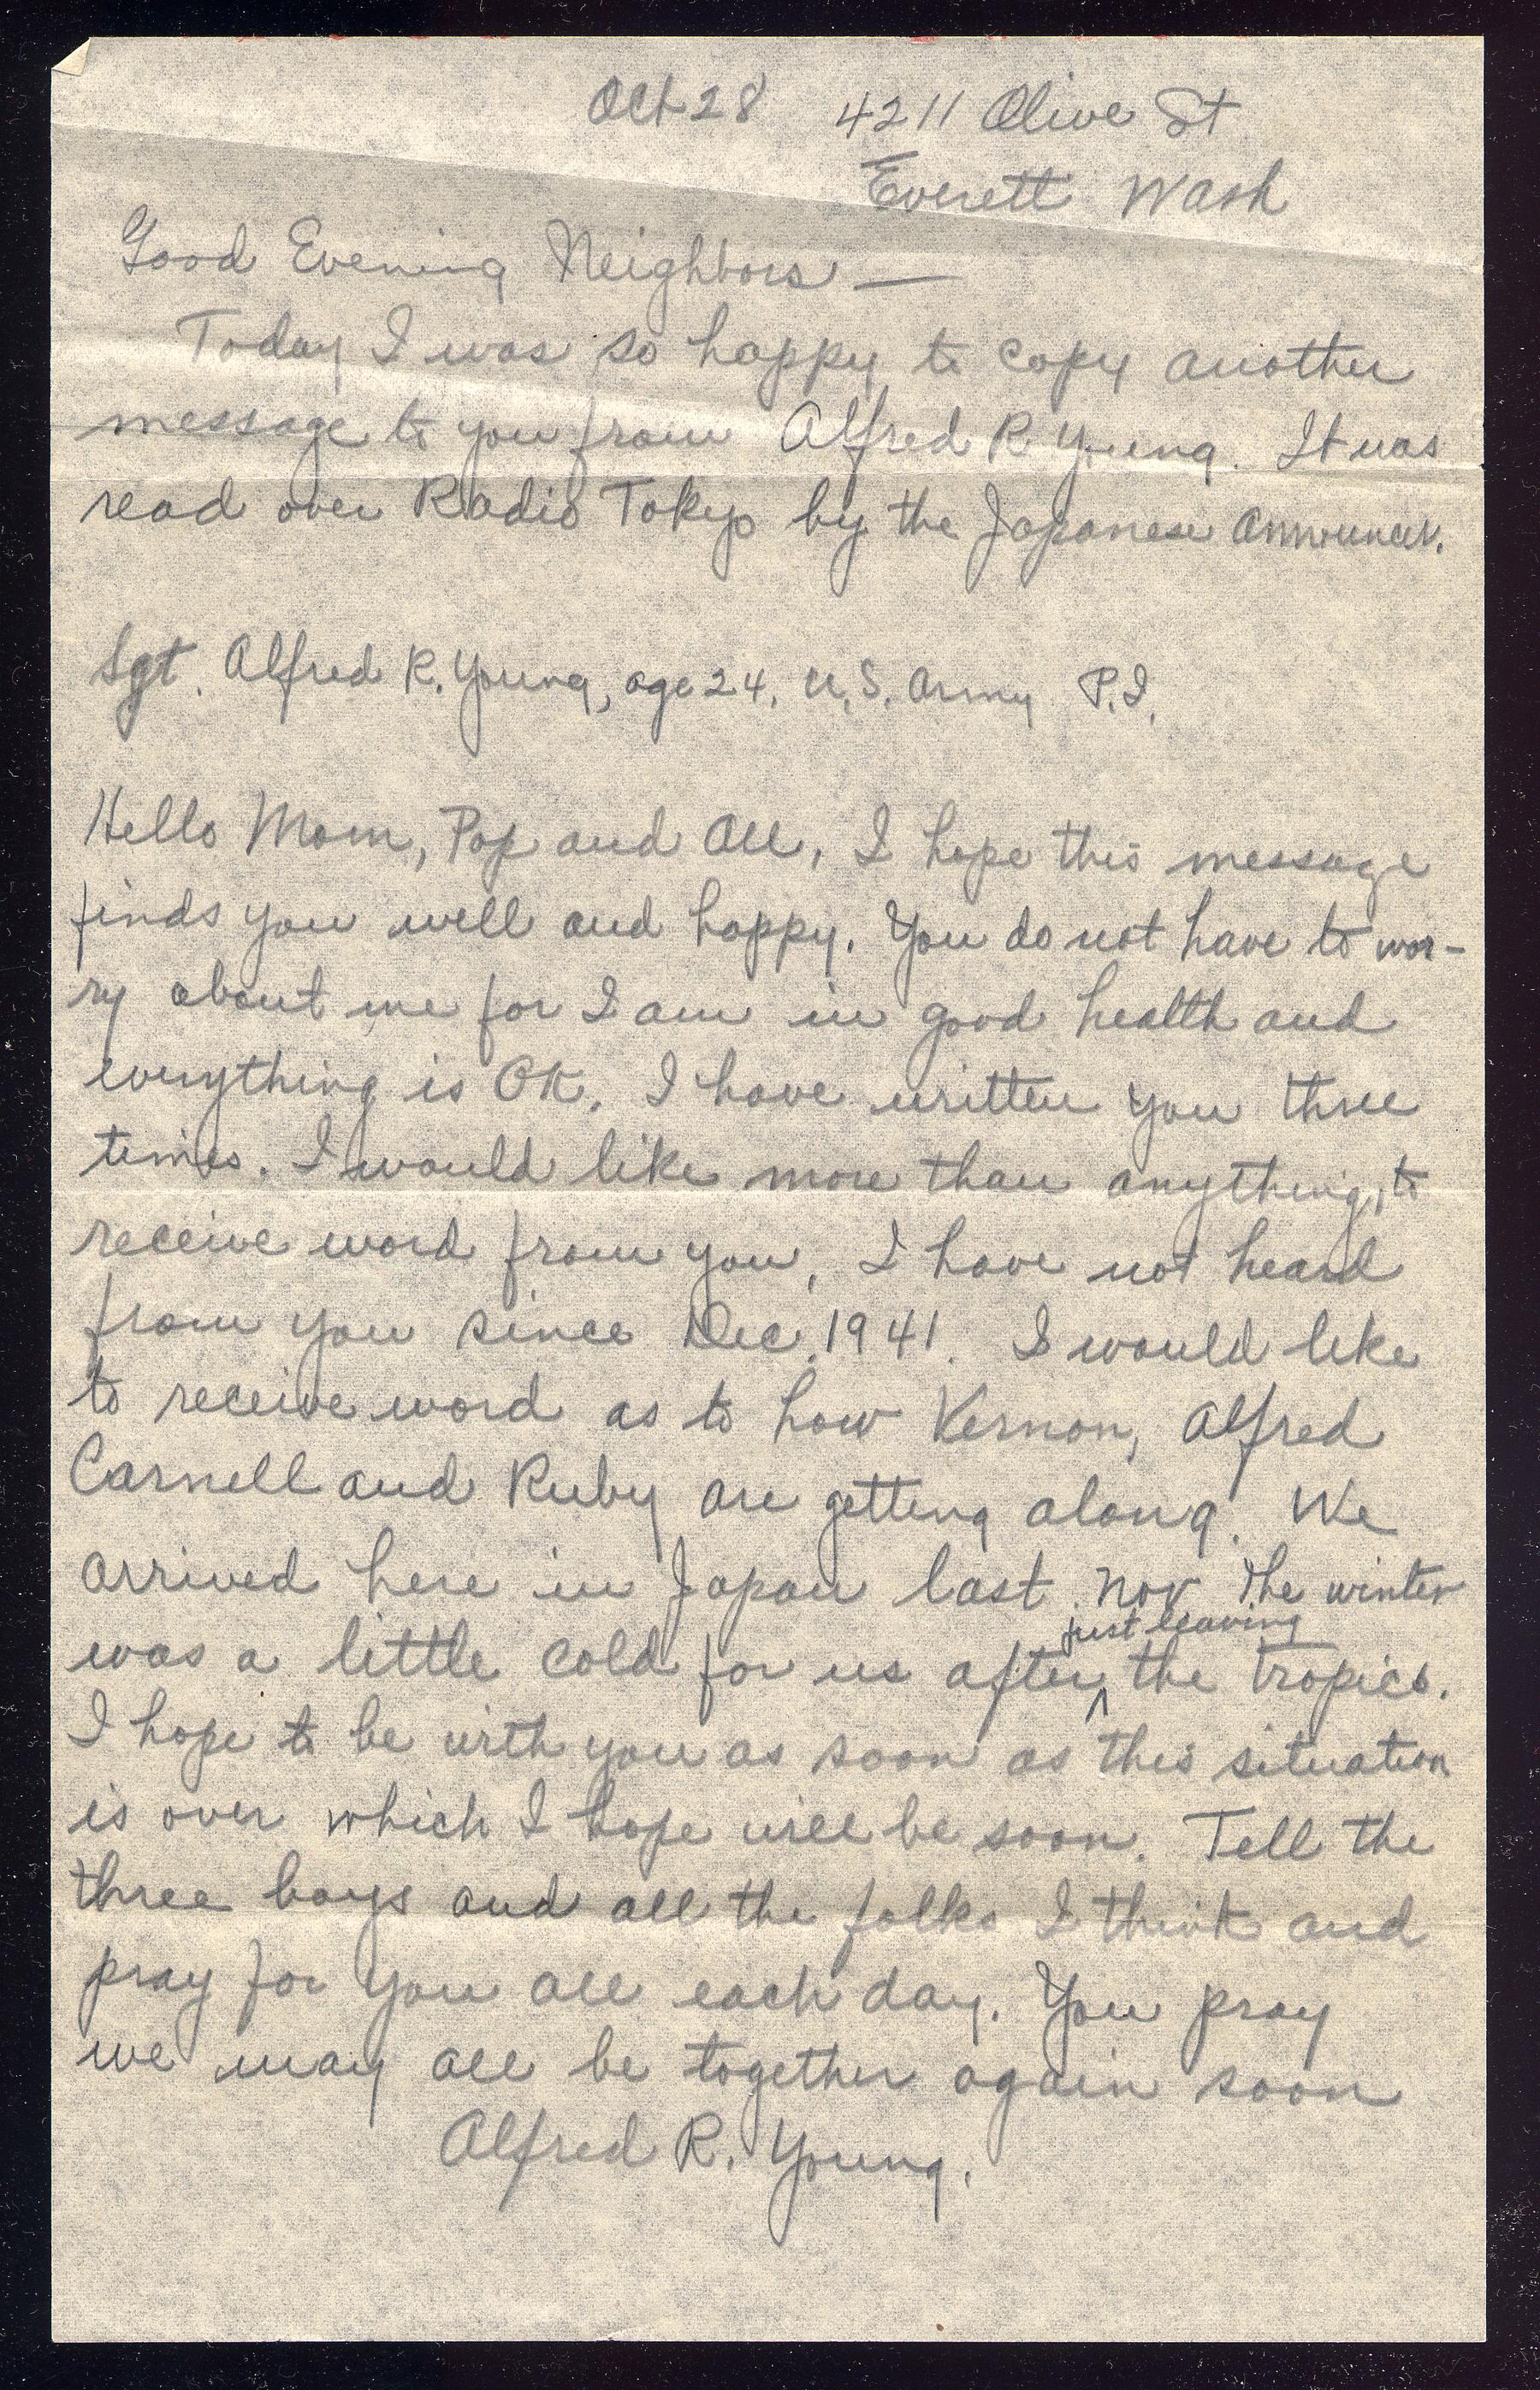 Oct 28 4211 Olive St
Everett Wash
Good Evening Neighbors —
Today I was so happy to copy another
message to you from Alfred R Young. It was
read over Radio Tokyo by the Japanese announcer.
Sgt. Alfred R. Young, age 24, U.S. Army P.I.
Hello Mom, Pop and All, I hope this message
finds you well and happy. You do not have to wor-
ry about me for I am in good health and
everything is OK. I have written you three
times. I would like more than anything, to
receive word from you, I have not heard
from you since Dec. 1941. I would like
to receive word as to how Vernon, Alfred
Carnell and Ruby are getting along. We
arrived here in Japan last Nov. The winter
just leaving
was a little cold for us after ^ the tropics.
I hope to be with you as soon as this situation
is over which I hope will be soon. Tell the
three boys and all the folks I think and
pray for you all each day. You pray
we may all be together again soon
Alfred R. Young.